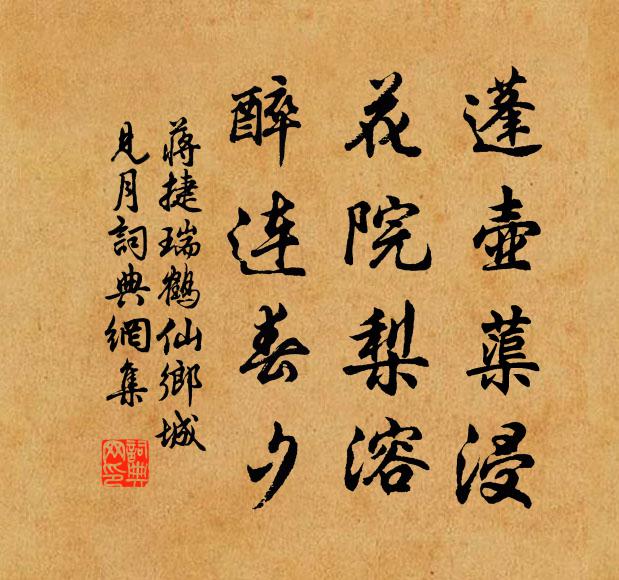 蓬壺蕖浸
花院梨溶
醉连春夕
蔣捷瑞鶴仙鄉城
見月詞典網集
詞典
网印